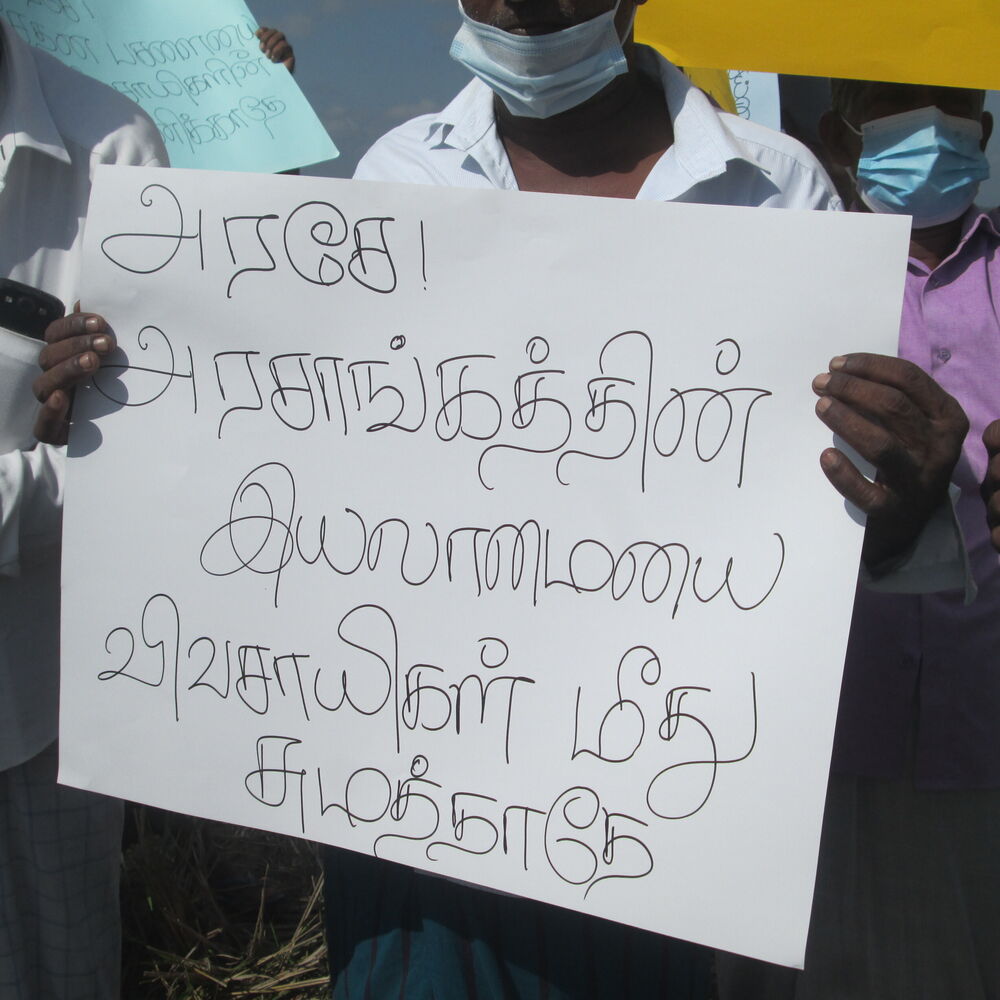 அரசே!
அரசாங்கத்தின்
இயலாமையை
விவசாயிகள் மீது
சுமத்தாதே